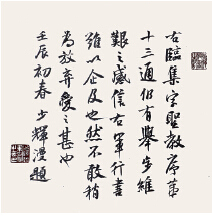 右臨集字聖教序第
十三通仍有舉步維
艱之感信右軍行書
難以企及也然不敢稍
為放弃愛之甚也
壬辰初春少輝漫題